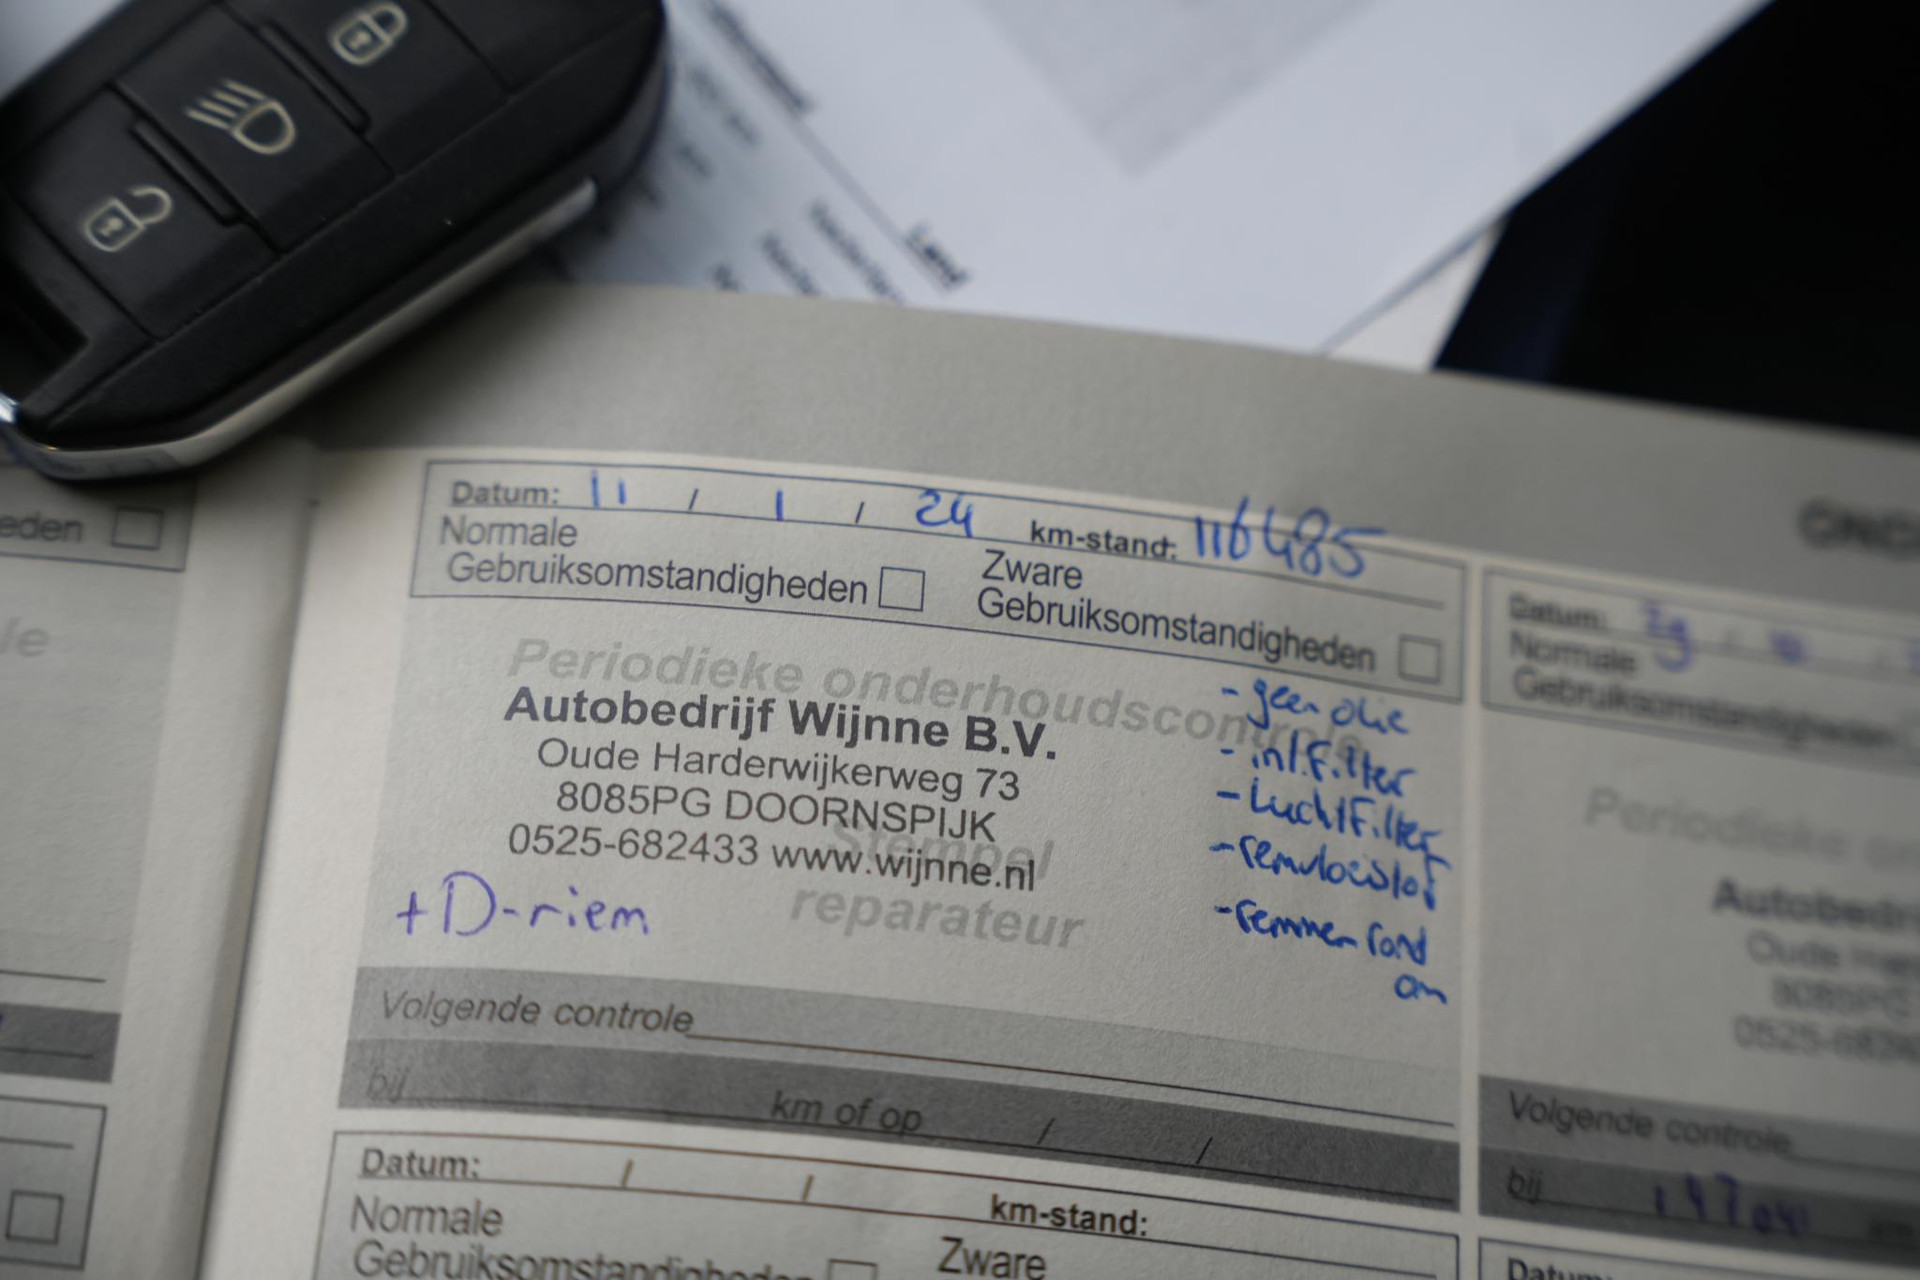 Land
eden
Datum: 11 / 1 / 24 km-stand: 116485
Normale
Gebruiksomstandigheden
Zware
Gebruiksomstandigheden
Periodieke onderhoudscontrole
Autobedrijf Wijnne B.V.
Oude Harderwijkerweg 73
8085PG DOORNSPIJK
0525-682433 www.wijnne.nl
Stempel
reparateur
+ D-riem
- geen olie
- int.filter
- Luchtfilter
- remvloeistof
- remmen rond
om
Volgende controle
bij km of op / /
Datum: / /
km-stand:
Normale
Gebruiksomstandigheden
Zware
Datum:
Normale
Gebruiksomstandigheden
Periodieke
Autobedr
Oude Har
8085PG
0525-682
Volgende controle
bij
Datum: